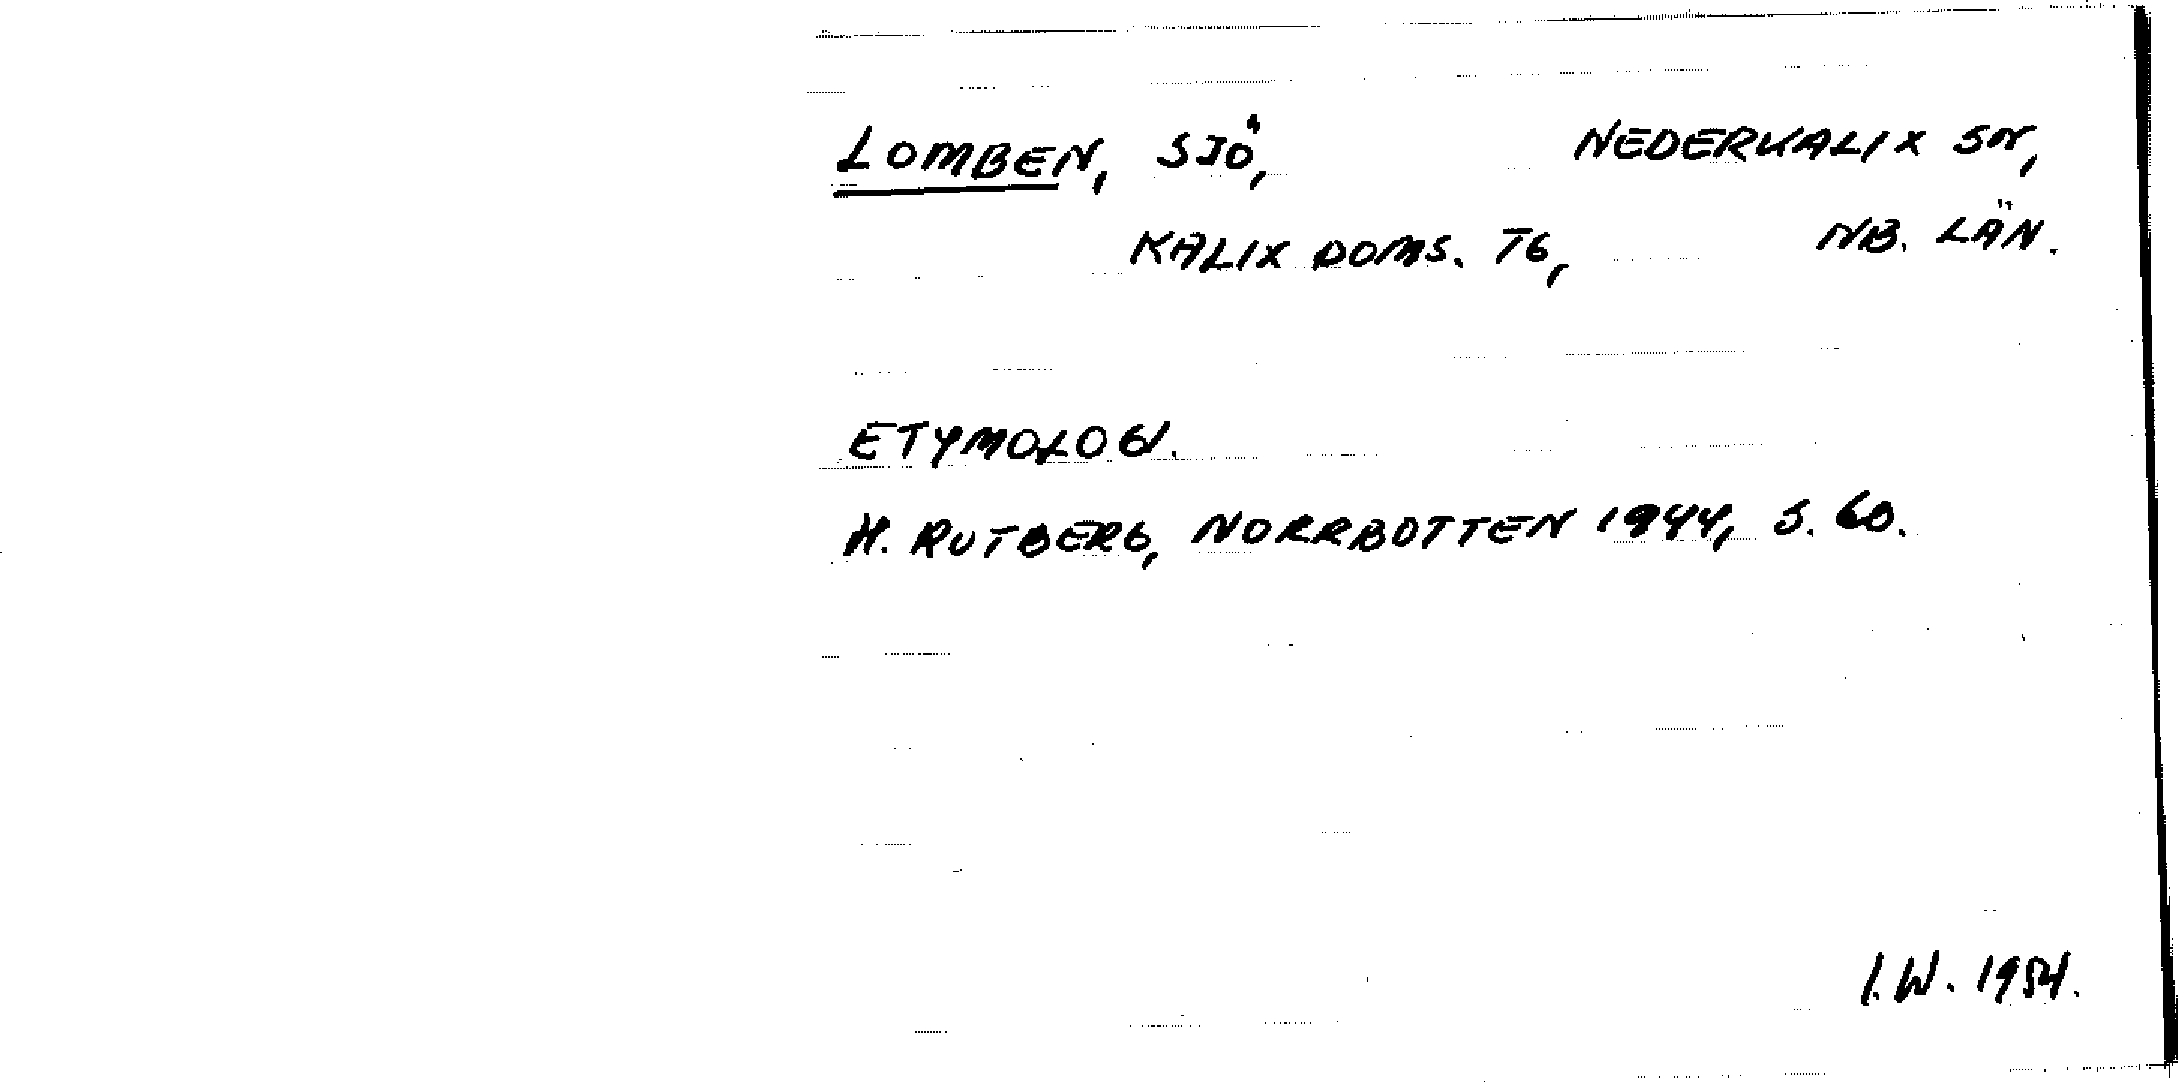 LOMBEN, SJÖ, NEDERKALIX SN,
KALIX DOMS. TG, NB. LÄN.
ETYMOLOGI.
H. RUTBERG, NORRBOTTEN 1944, S. 60.
I.W. 1954.